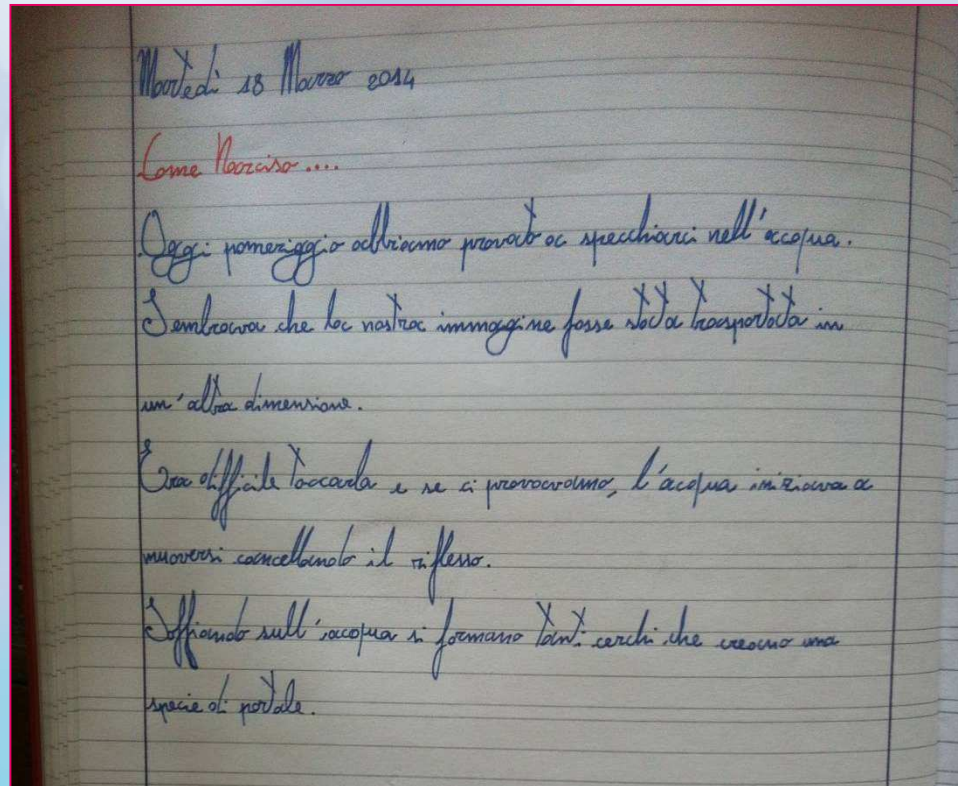 Martedì 18 Marzo 2014
Come Narciso....
Oggi pomeriggio abbiamo provato a specchiarci nell'acqua.
Sembrava che la nostra immagine fosse stata trasportata in
un'altra dimensione.
Era difficile toccarla e se ci provavamo, l'acqua iniziava a
muoversi cancellando il riflesso.
Soffiando sull'acqua si formano tanti cerchi che creano una
specie di portale.